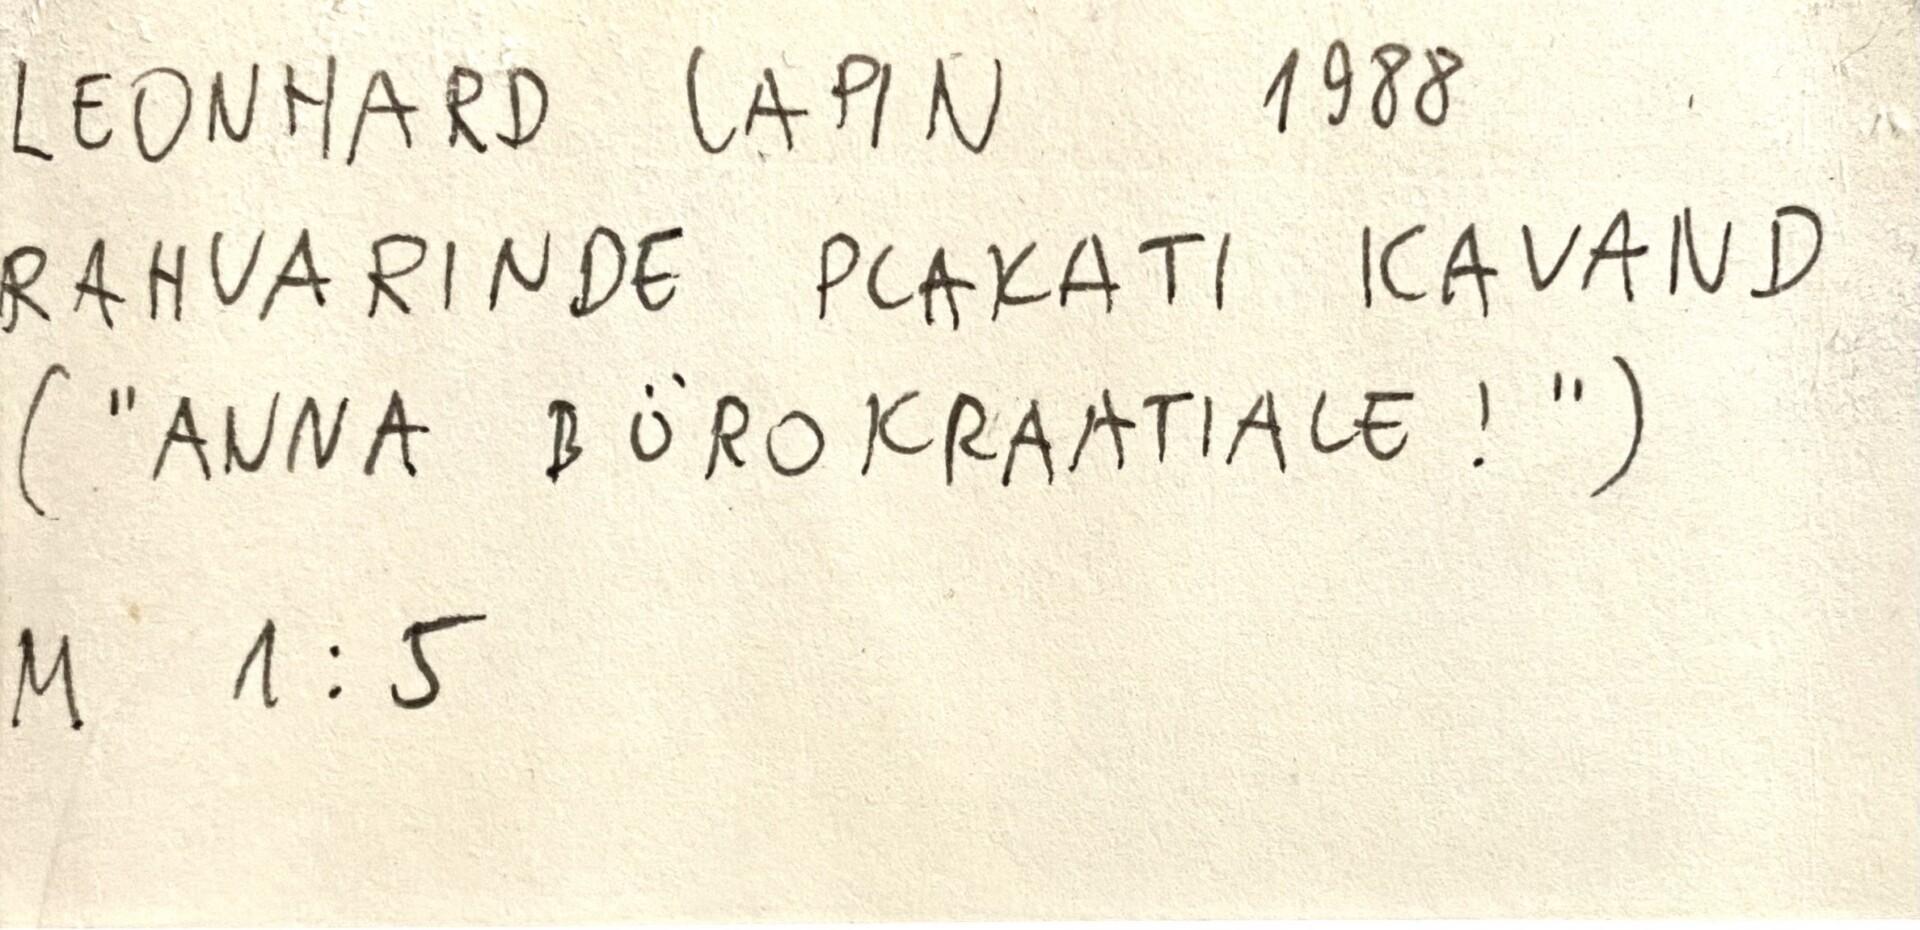 LEONHARD LAPIN 1988
RAHVARINDE PLAKATI KAVAND
("ANNA BÜROKRAATIALE!")
M 1:5